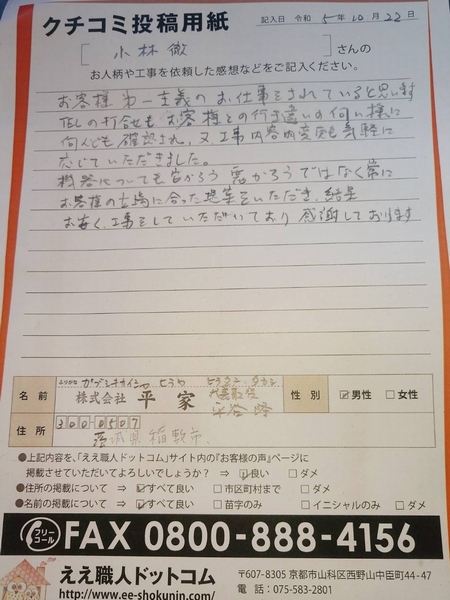 クチコミ投稿用紙
記入日 令和 5年 10月 22日
[ 小林 徹 ] さんの
お人柄や工事を依頼した感想などをご記入ください。
お客様第一主義のお仕事をされていると思います
但しの打合せもお客様との行き違いの何い様に
何んども確認され、又工事内容的変更も気軽に
応じていただきました。
機器についても安かろう 悪かろうではなく常に
お客様の立場に合った提案をいただき、結果
お安く、工事をしていただいており 感謝しております
ふりがな カブシキカイシャ ヒラヤ
名前 株式会社 平家 代表取役
性別 ☑男性 □女性
住所 300-0507
茨城県稲敷市
●上記内容を、「ええ職人ドットコム」サイト内の『お客様の声』ページに
掲載させていただいてよろしいでしょうか? ⇒ ☑良い □ダメ
●住所の掲載について ⇒ ☑すべて良い □市区町村まで □ダメ
●名前の掲載について ⇒ ☑すべて良い □苗字のみ □イニシャルのみ □ダメ
フリーコール FAX 0800-888-4156
ええ職人ドットコム
http://www.ee-shokunin.com/
〒607-8305 京都市山科区西野山中臣町44-47
電話 : 075-583-2801